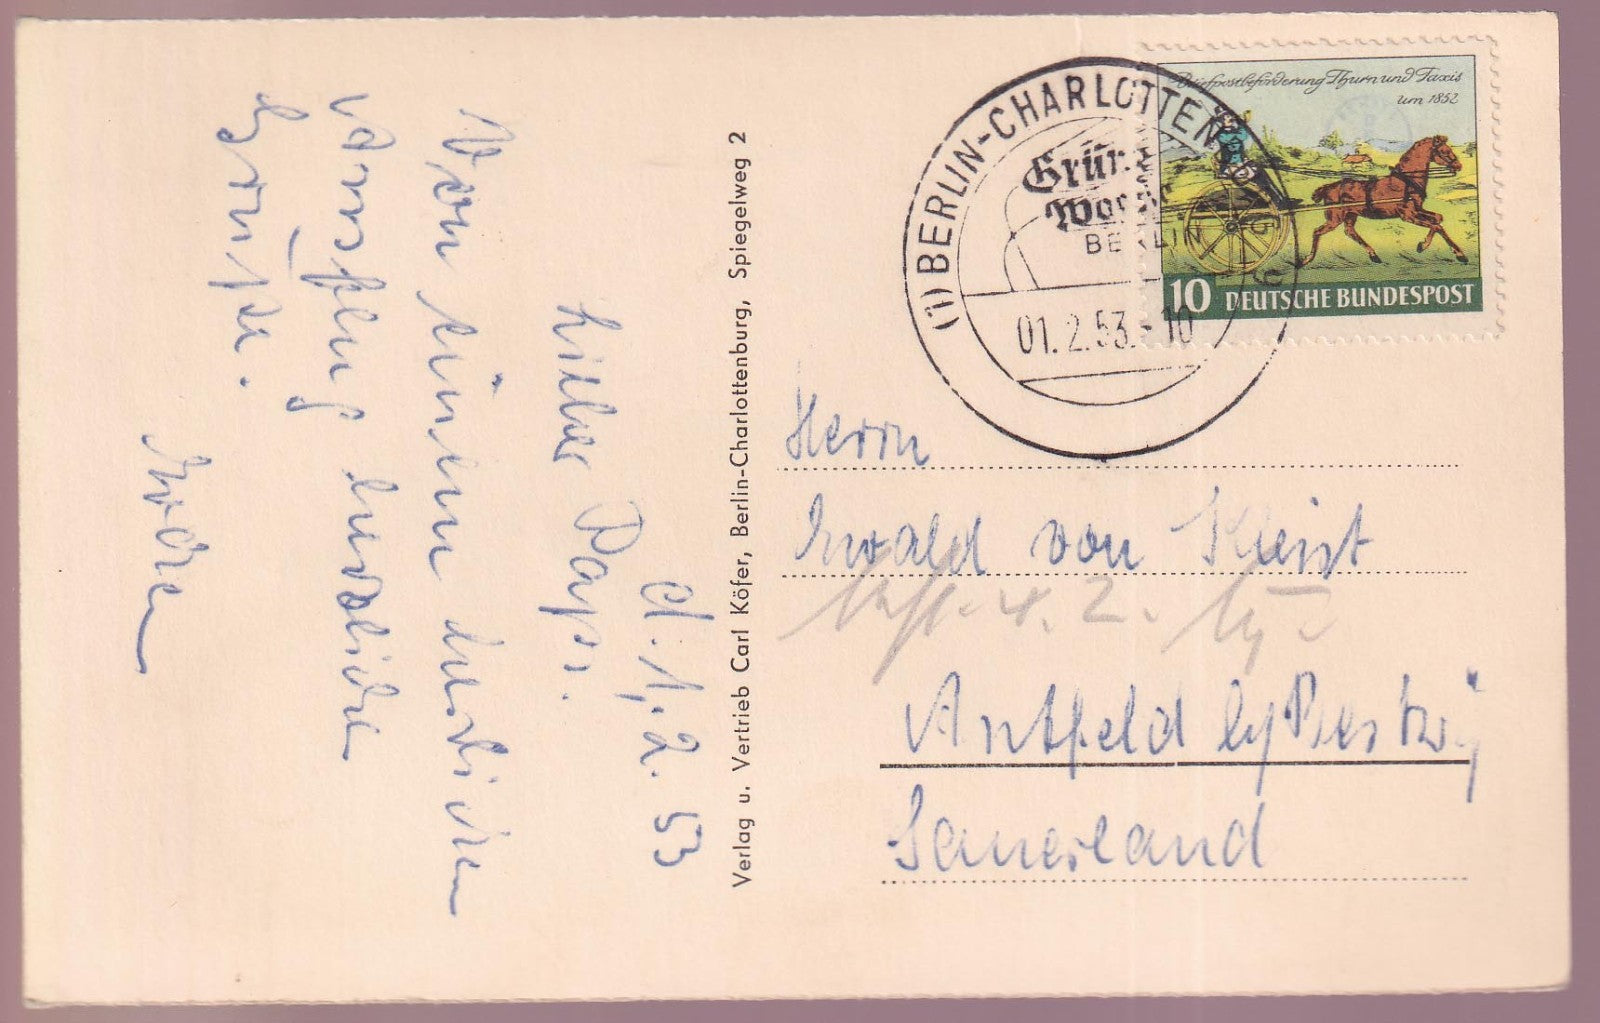 Briefpostbeförderung Thurn und Taxis
um 1852
10 DEUTSCHE BUNDESPOST
(1) BERLIN-CHARLOTTEN
Grün
Woche
BERLIN
01.2.53.-10
Verlag u. Vertrieb Carl Köfer, Berlin-Charlottenburg, Spiegelweg 2
d. 1.2.53
Lieber Papi.
Von einem herrlichen
Ausflug herzliche
Grüße.
Herrn
Ewald von Kleist
Antfeld by Bestwig
Sauerland